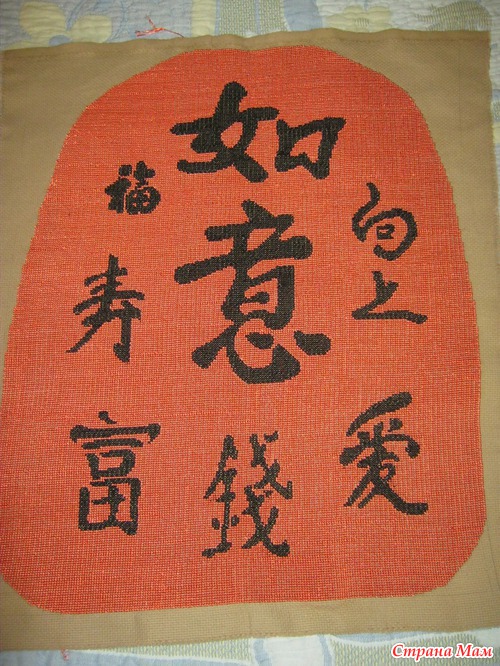 如意
福
寿
富
錢
向上
愛
Страна Мам